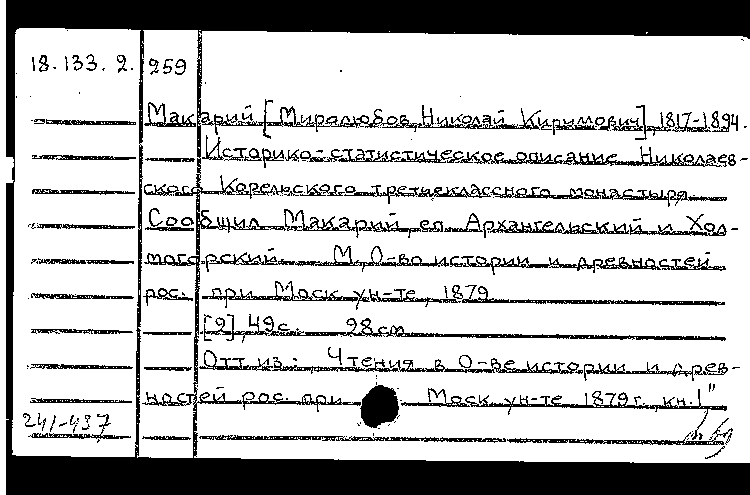 18.133.2.259
Макарий [Миролюбов, Николай Кирилович], 1817-1894.
Историко-статистическое описание Николаев-
ского Корельского третьеклассного монастыря.
Сообщил Макарий, еп. Архангельский и Хол-
могорский. М., О-во истории и древностей
рос. при Моск. ун-те, 1879.
[2], 49 с. 28 см
Отт. из: Чтения в О-ве истории и древ-
ностей рос. при Моск. ун-те 1879 г., кн. 1"
241-437